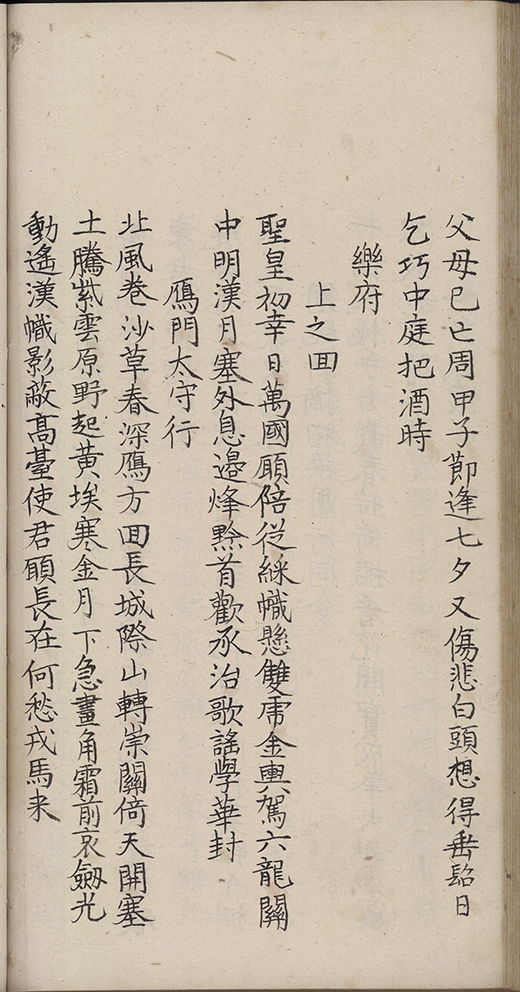 父母已亡周甲子節逢七夕又傷悲白頭想得垂髫日
乞巧中庭把酒時
樂府
上之回
聖皇初幸日萬國願陪從綵幟懸雙虎金輿駕六龍關
中明漢月塞外息邊烽黔首歡承治歌謠學華封
鴈門太守行
北風卷沙草春深鴈方回長城際山轉崇關倚天開塞
土騰紫雲原野起黃埃寒金月下急畫角霜前哀劒光
動遙漢幟影蔽高臺使君願長在何愁戎馬来